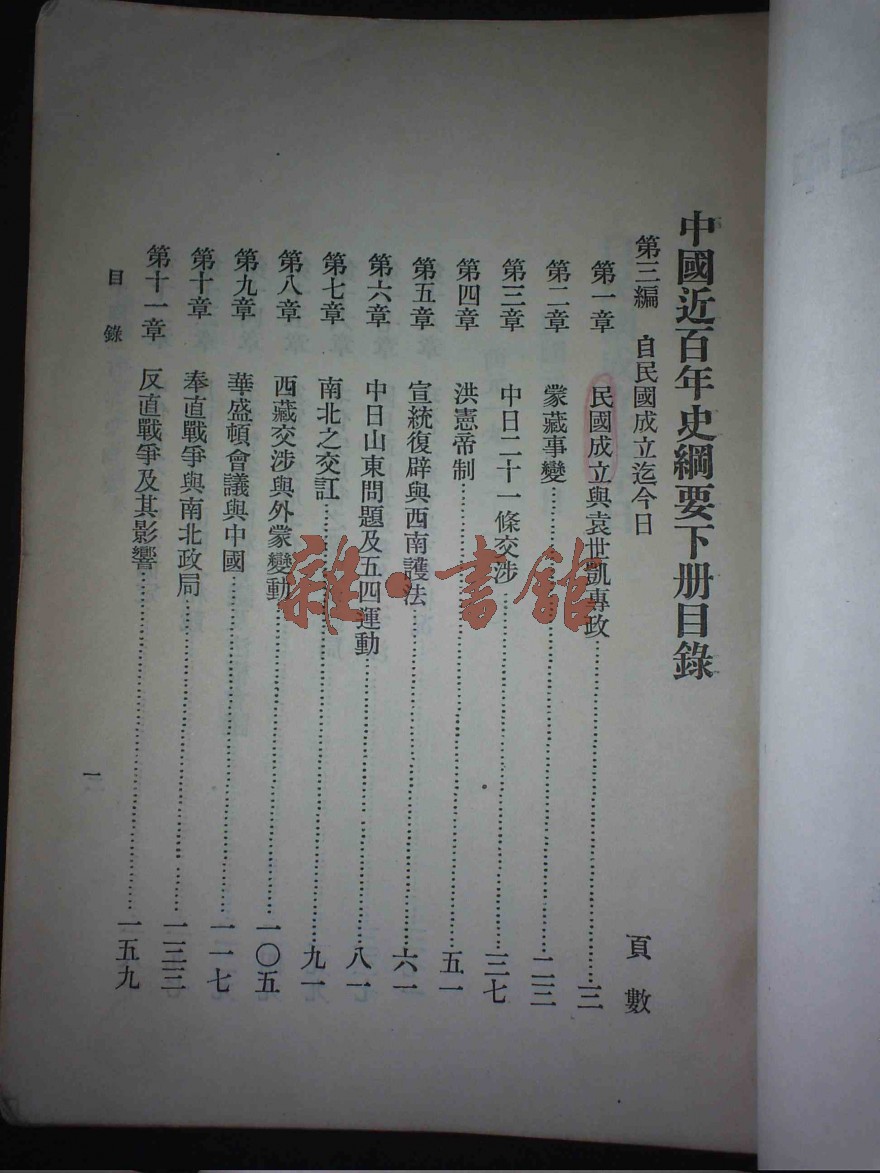 中國近百年史綱要下册目錄
第三編　自民國成立迄今日　頁數
第一章　民國成立與袁世凱專政……三
第二章　蒙藏事變……二三
第三章　中日二十一條交涉……三七
第四章　洪憲帝制……五一
第五章　宣統復辟與西南護法……六一
第六章　中日山東問題及五四運動……八一
第七章　南北之交訌……九一
第八章　西藏交涉與外蒙變動……一〇五
第九章　華盛頓會議與中國……一一七
第十章　奉直戰爭與南北政局……一三三
第十一章　反直戰爭及其影響……一五九
目錄　一
雜·書館